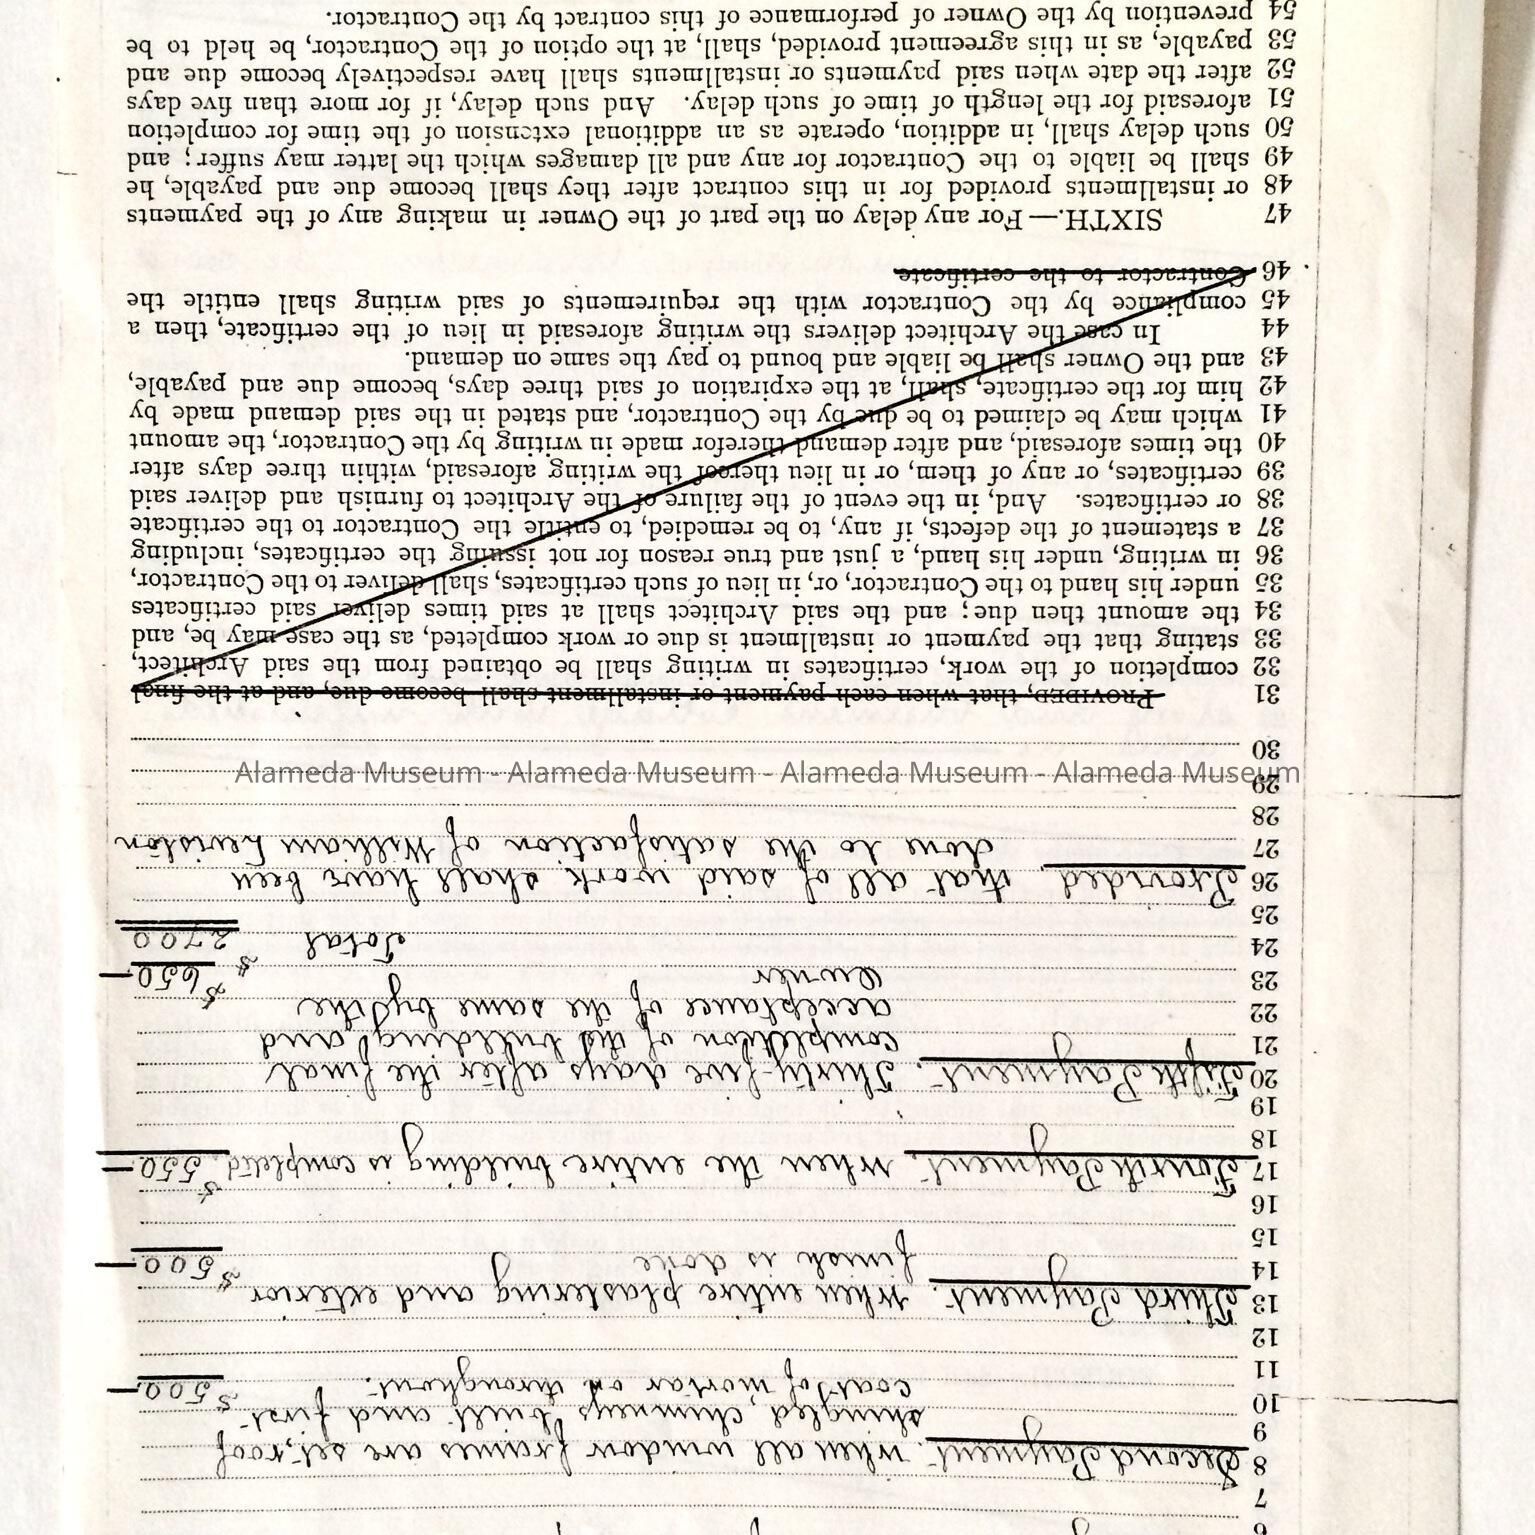 6
7
8 Second Payment. When all window frames are set, roof
9 shingled, chimneys built and first
10 coat of mortar on throughout. $500.—
11
12
13 Third Payment. When entire plastering and exterior
14 finish is done $500.—
15
16
17 Fourth Payment. When the entire building is completed. $550.—
18
19
20 Fifth Payment. Thirty-five days after the final
21 completion of the building and
22 acceptance of the same by the
23 Owner $650.—
24 Total $2700
25
26 Provided. that all of said work shall have been
27 done to the satisfaction of William Leviston
28
29
30
Alameda Museum - Alameda Museum - Alameda Museum - Alameda Museum
31 PROVIDED, that when each payment or installment shall become due, and at the final
32 completion of the work, certificates in writing shall be obtained from the said Architect,
33 stating that the payment or installment is due or work completed, as the case may be, and
34 the amount then due; and the said Architect shall at said times deliver said certificates
35 under his hand to the Contractor, or, in lieu of such certificates, shall deliver to the Contractor,
36 in writing, under his hand, a just and true reason for not issuing the certificates, including
37 a statement of the defects, if any, to be remedied, to entitle the Contractor to the certificate
38 or certificates. And, in the event of the failure of the Architect to furnish and deliver said
39 certificates, or any of them, or in lieu thereof the writing aforesaid, within three days after
40 the times aforesaid, and after demand therefor made in writing by the Contractor, the amount
41 which may be claimed to be due by the Contractor, and stated in the said demand made by
42 him for the certificate, shall, at the expiration of said three days, become due and payable,
43 and the Owner shall be liable and bound to pay the same on demand.
44 In case the Architect delivers the writing aforesaid in lieu of the certificate, then a
45 compliance by the Contractor with the requirements of said writing shall entitle the
46 Contractor to the certificate
47 SIXTH.—For any delay on the part of the Owner in making any of the payments
48 or installments provided for in this contract after they shall become due and payable, he
49 shall be liable to the Contractor for any and all damages which the latter may suffer; and
50 such delay shall, in addition, operate as an additional extension of the time for completion
51 aforesaid for the length of time of such delay. And such delay, if for more than five days
52 after the date when said payments or installments shall have respectively become due and
53 payable, as in this agreement provided, shall, at the option of the Contractor, be held to be
54 prevention by the Owner of performance of this contract by the Contractor.